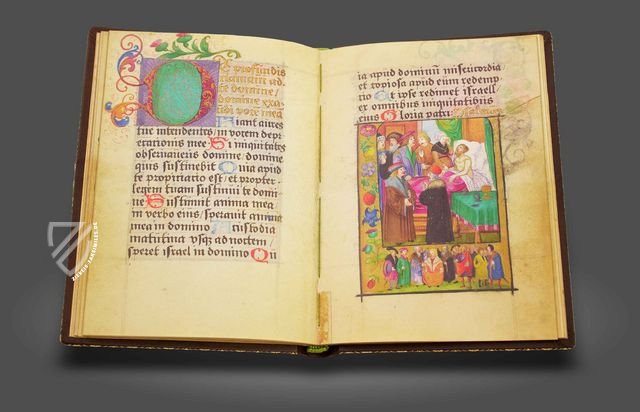 De profundis
clamavi ad
te domine /
domine exa
udi vocem mea
Fiant aures
tue intendentes / in vocem depr
ecationis mee Si iniquitates
observaveris domine / domine
quis sustinebit Quia apud
te propitiatio est / et propter
legem tuam sustinui te domi
ne Sustinuit anima mea
in verbo eius / speravit anima
mea in domino A custodia
matutina usq; ad noctem /
speret israel in domino Qu
ia apud dominum misericordia /
et copiosa apud eum redemp
tio Et ipse redimet israell
ex omnibus iniquitatibus
eius Gloria patri
ZIEREIS-FAKSIMILES.DE